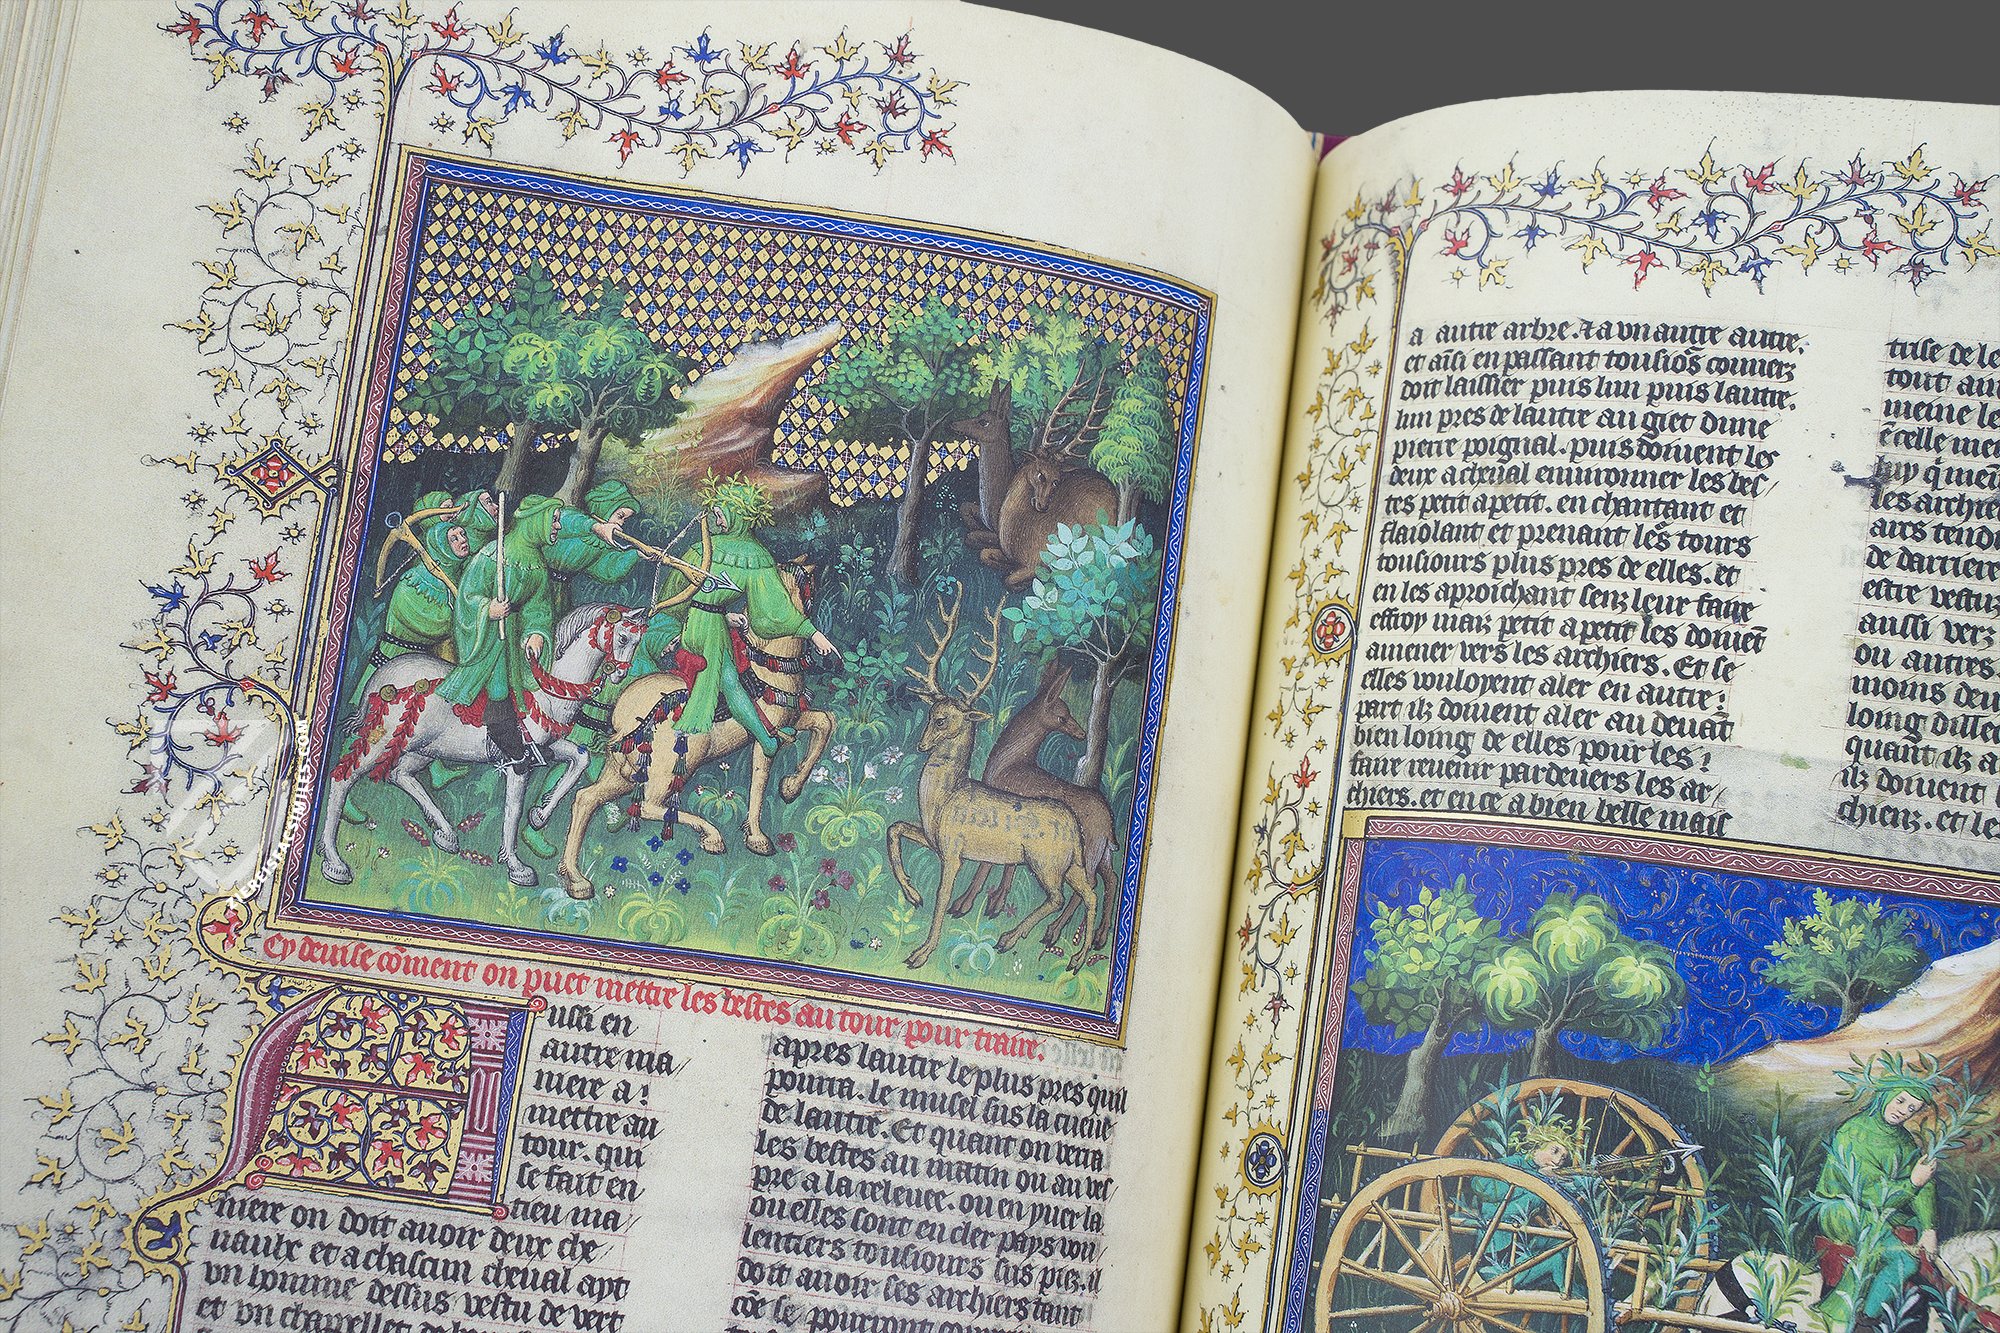 Cy deuise cōment on puet mettre les bestes au tour pour traire.
Aussi en
autre ma
niere a !
mettre au
tour. qui
se fait en
tieu ma
niere on doit auoir deux che
uaulx et a chascun cheual apt
vn homme dessus vestu de vert
et vn chapellet de
apres lautre le plus pres quil
pourra. le musel sus la cueue
de lautre. Et quant on verra
les bestes au matin ou au ves
pre a la releuee. ou en yuer la
ou elles sont en cler pays vou
lentiers tousiours sus piez. il
doit auoir ses archiers tant
cōe se pourront
a autre arbre. et a vn autre autre.
et aīsi en passant tousiōs couuerz
doit laissier puis lun puis lautre.
lun pres de lautre au giet dune
pierre poignal. puis doiuent les
deux a cheual enuironner les bes
tes petit a petit. en chantant et
flaiolant et prenant les tours
tousiours plus pres de elles. et
en les aproichant senz leur faire
effroy maiz petit a petit les doiuēt
amener vers les archiers. Et se
elles vuloyent aler en autre !
part ilz doiuent aler au deuāt
bien loing de elles pour les !
faire reuenir par deuers les ar
chiers. et en ce a bien belle mais
trise de le
tout au
meine le
ēcelle me
luy q̄ uien
les archie
airs tendu
de darriere
estre vestuz
aussi verz
ou autres.
moins deu
loing
quant ilz a
ilz doiuent
chienz. et les
FACSIMILES.COM